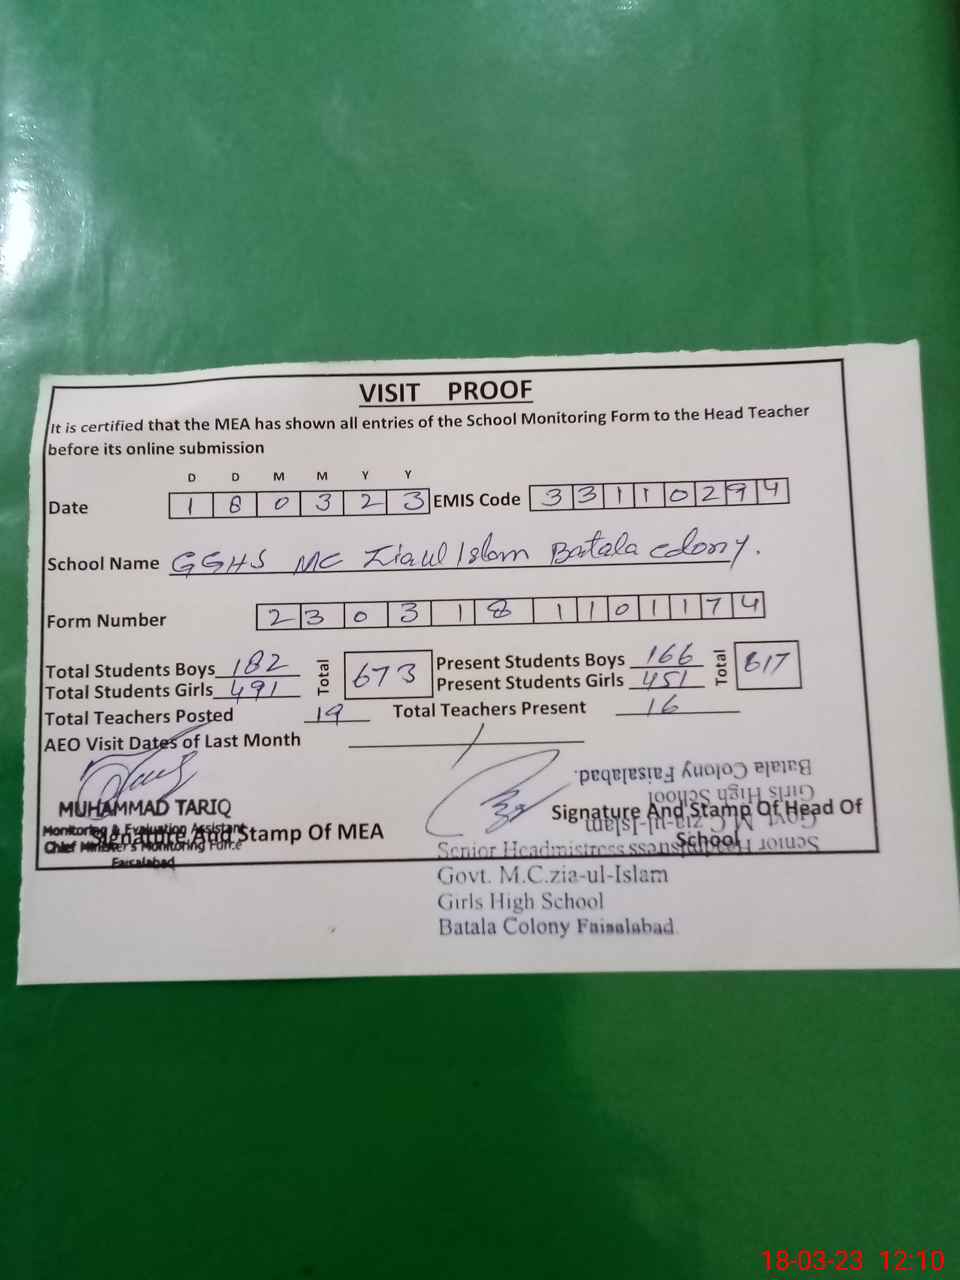 VISIT PROOF
It is certified that the MEA has shown all entries of the School Monitoring Form to the Head Teacher
before its online submission
D D M M Y Y
Date 1 8 0 3 2 3 EMIS Code 3 3 1 1 0 2 9 4
School Name GGHS MC Ziaul Islam Batala colony.
Form Number 2 3 0 3 1 8 1 1 0 1 1 7 4
Total Students Boys 182 Total 673 Present Students Boys 166 Total 617
Total Students Girls 491 Present Students Girls 451
Total Teachers Posted 19 Total Teachers Present 16
AEO Visit Dates of Last Month /
Batala Colony Faisalabad.
Girls High School
Govt. M.C.zia-ul-Islam
Senior Headmistress
MUHAMMAD TARIQ
Monitoring & Evaluation Assistant
Chief Minister's Monitoring Force
Faisalabad
Signature And Stamp Of MEA
Signature And Stamp Of Head Of
School
Senior Headmistress
Govt. M.C.zia-ul-Islam
Girls High School
Batala Colony Faisalabad.
18-03-23 12:10